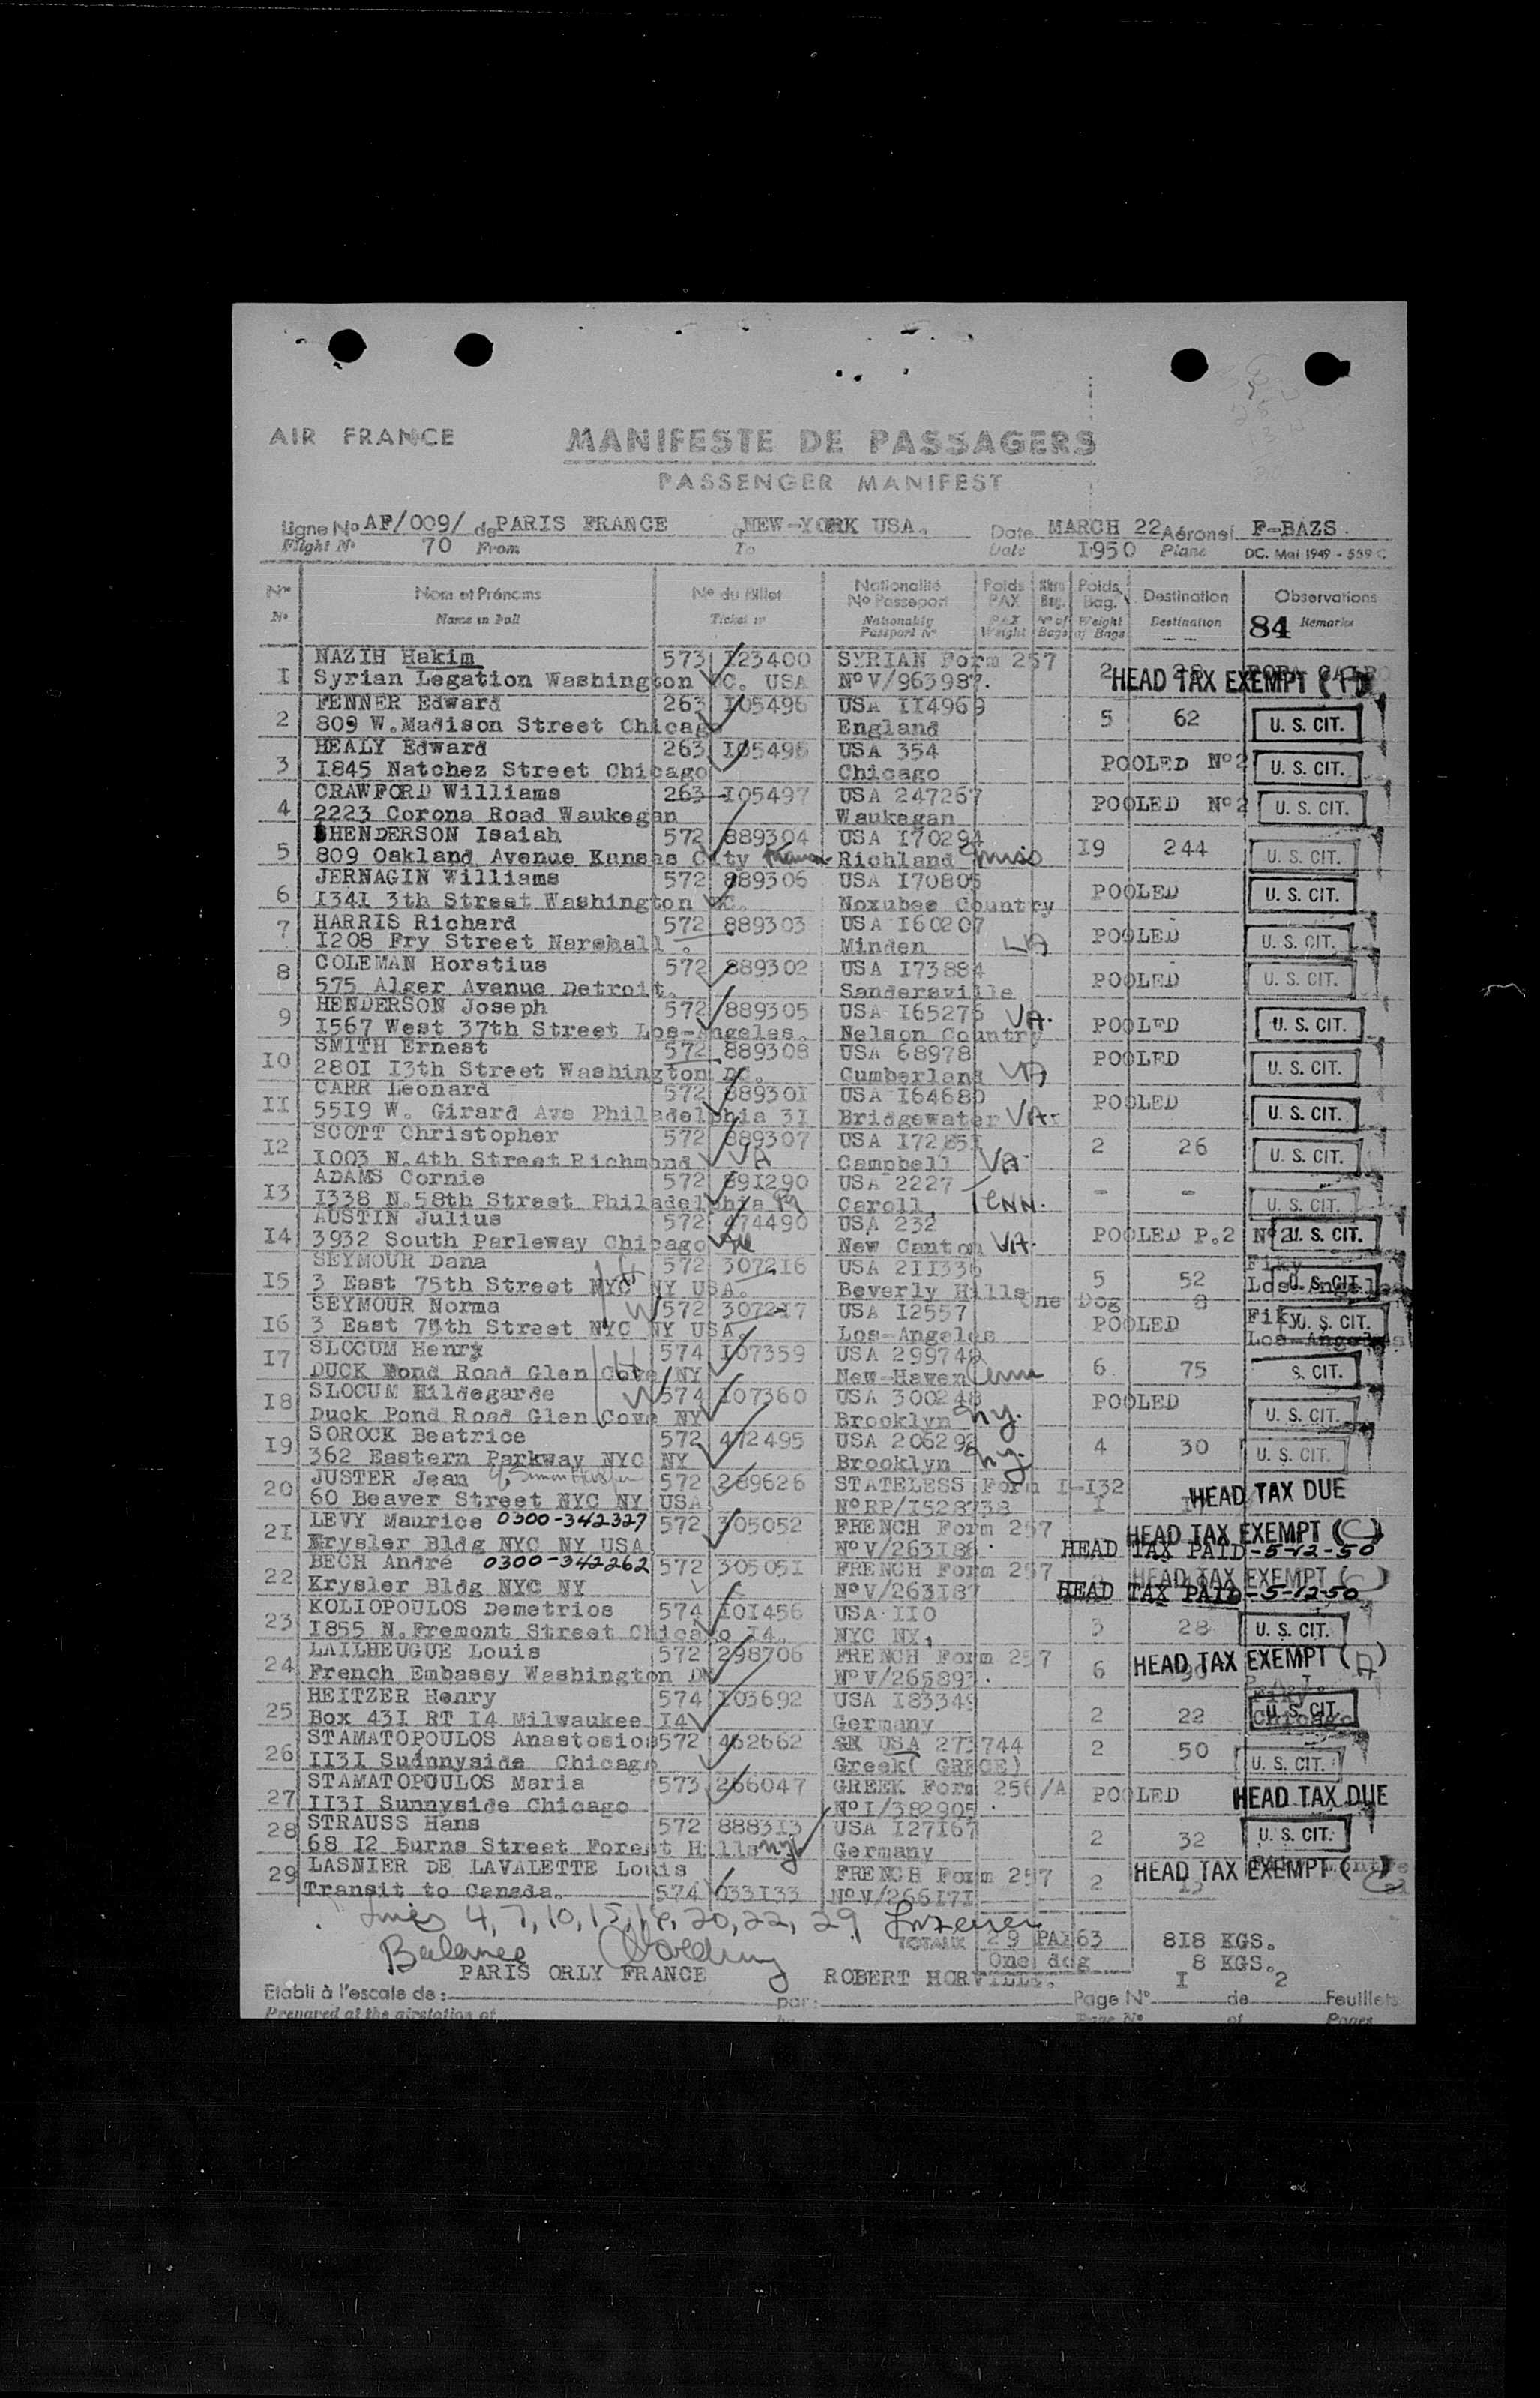 AIR FRANCE
MANIFESTE DE PASSAGERS
PASSENGER MANIFEST
Ligne No AF/009/ de PARIS FRANCE a NEW-YORK USA. Date MARCH 22 Aéronef F-BAZS.
Flight No 70 From To Date 1950 Plane DC. Mai 1949 - 559 C
Nos Nom et Prénoms No du Billet Nationalité No Passeport Poids PAX Poids Bag. Destination Observations
No Name in Full Ticket No Nationality Passport No PAX Weight No of Bags Weight of Bags Destination 84 Remarks
NAZIH Hakim 573 I23400 SYRIAN Form 257 2
I Syrian Legation Washington C. USA No V/963987. HEAD TAX EXEMPT
FENNER Edward 263 I05496 USA II4969 5 62
2 809 W.Madison Street Chicago England U. S. CIT.
HEALY Edward 263 I05495 USA 354 POOLED No2
3 I845 Natchez Street Chicago Chicago U. S. CIT.
CRAWFORD Williams 263 I05497 USA 247267 POOLED No2
4 2223 Corona Road Waukegan Waukegan U. S. CIT.
HENDERSON Isaiah 572 889304 USA I70294 I9 244
5 809 Oakland Avenue Kansas City Richland Miss U. S. CIT.
JERNAGIN Williams 572 889306 USA I70805 POOLED
6 I341 3th Street Washington DC. Noxubee Country U. S. CIT.
HARRIS Richard 572 889303 USA I60207 POOLED
7 I208 Fry Street Narshall . Minden LA U. S. CIT.
COLEMAN Horatius 572 889302 USA I73884 POOLED
8 575 Alger Avenue Detroit. Sandersville U. S. CIT.
HENDERSON Joseph 572 889305 USA I65276 VA. POOLED
9 I567 West 37th Street Los-Angeles. Nelson Country U. S. CIT.
SMITH Ernest 572 889308 USA 68978 POOLED
IO 280I I3th Street Washington DC. Cumberland VA U. S. CIT.
CARR Leonard 572 88930I USA I64680 POOLED
II 55I9 W. Girard Ave Philadelphia 3I Bridgewater VA. U. S. CIT.
SCOTT Christopher 572 889307 USA I7285I 2 26
I2 I003 N.4th Street Richmond VA Campbell VA U. S. CIT.
ADAMS Cornie 572 89I290 USA 2227 - -
I3 I338 N.58th Street Philadelphia Pa Caroll, TENN. U. S. CIT.
AUSTIN Julius 572 474490 USA 232 POOLED P.2 No2
I4 3932 South Parleway Chicago Ill New Canton VA. U. S. CIT.
SEYMOUR Dana 572 3072I6 USA 2II336 5 52 Fiky
I5 3 East 75th Street NYC NY USA. Beverly Hills One Dog 8 Los-Angeles U. S. CIT.
SEYMOUR Norma W 572 3072I7 USA I2557 POOLED Fiky
I6 3 East 75th Street NYC NY USA. Los-Angeles Los-Angeles U. S. CIT.
SLOCUM Henry H 574 I07359 USA 299749 6 75
I7 DUCK Pond Road Glen Cove NY New-Haven Conn S. CIT.
SLOCUM Hildegarde W 574 I07360 USA 300248 POOLED
I8 Duck Pond Road Glen Cove NY Brooklyn N.Y. U. S. CIT.
SOROCK Beatrice 572 472495 USA 206292 4 30
I9 362 Eastern Parkway NYC NY Brooklyn N.Y. U. S. CIT.
JUSTER Jean 572 289626 STATELESS Form I-I32
20 60 Beaver Street NYC NY USA. No RP/I528738 I HEAD TAX DUE
LEVY Maurice 0300-342327 572 305052 FRENCH Form 257 HEAD TAX EXEMPT (C)
2I Krysler Bldg NYC NY USA No V/263I86. HEAD TAX PAID-5-12-50
BECH André 0300-342262 572 30505I FRENCH Form 257 HEAD TAX EXEMPT (C)
22 Krysler Bldg NYC NY No V/263I87 HEAD TAX PAID-5-12-50
KOLIOPOULOS Demetrios 574 I0I456 USA IIO 3 28
23 I855 N.Fremont Street Chicago I4. NYC NY, U. S. CIT.
LAILHEUGUE Louis 572 298706 FRENCH Form 257 6
24 French Embassy Washington DN No V/265893. HEAD TAX EXEMPT (A)
HEITZER Henry 574 I03692 USA I83349 2 22 Fiky
25 Box 43I RT I4 Milwaukee I4 Germany Chicago U. S. CIT.
STAMATOPOULOS Anastosios 572 462662 GK USA 273744 2 50
26 II3I Sudnnyside Chicago Greek( GRECE) U. S. CIT.
STAMATOPOULOS Maria 573 266047 GREEK Form 256/A POOLED
27 II3I Sunnyside Chicago No I/382905. HEAD TAX DUE
STRAUSS Hans 572 8883I3 USA I27I67 2 32
28 68 I2 Burns Street Forest Hills NY Germany U. S. CIT.
LASNIER DE LAVALETTE Louis FRENCH Form 257 2
29 Transit to Canada. 574 033I33 No V/266I7I HEAD TAX EXEMPT (C)
Lines 4, 7, 10, 15, 16, 20, 22, 29
Balance
TOTAUX 29 PAX 63 8I8 KGS.
One dog 8 KGS.
PARIS ORLY FRANCE ROBERT HORVILLE. I 2
Etabli à l'escale de : par: Page No de Feuillets
Prepared at the airstation of by Page No of Pages